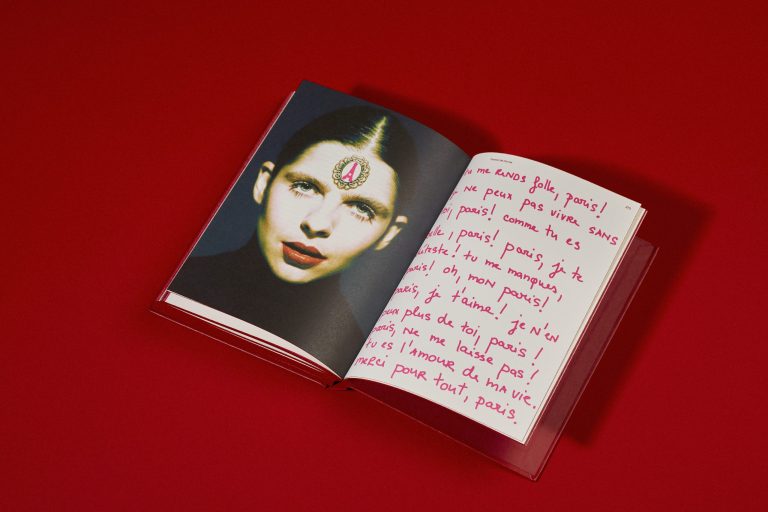 tu me RENDS folle, paris!
ne peux pas vivre SANS
toi, paris! comme tu es
belle, paris! paris, je te
déteste! tu me manques,
paris! oh, mon paris!
paris, je t'aime! je n'en
peux plus de toi, paris!
paris, ne me laisse pas!
tu es l'AMOUR de ma vie.
merci pour tout, paris.